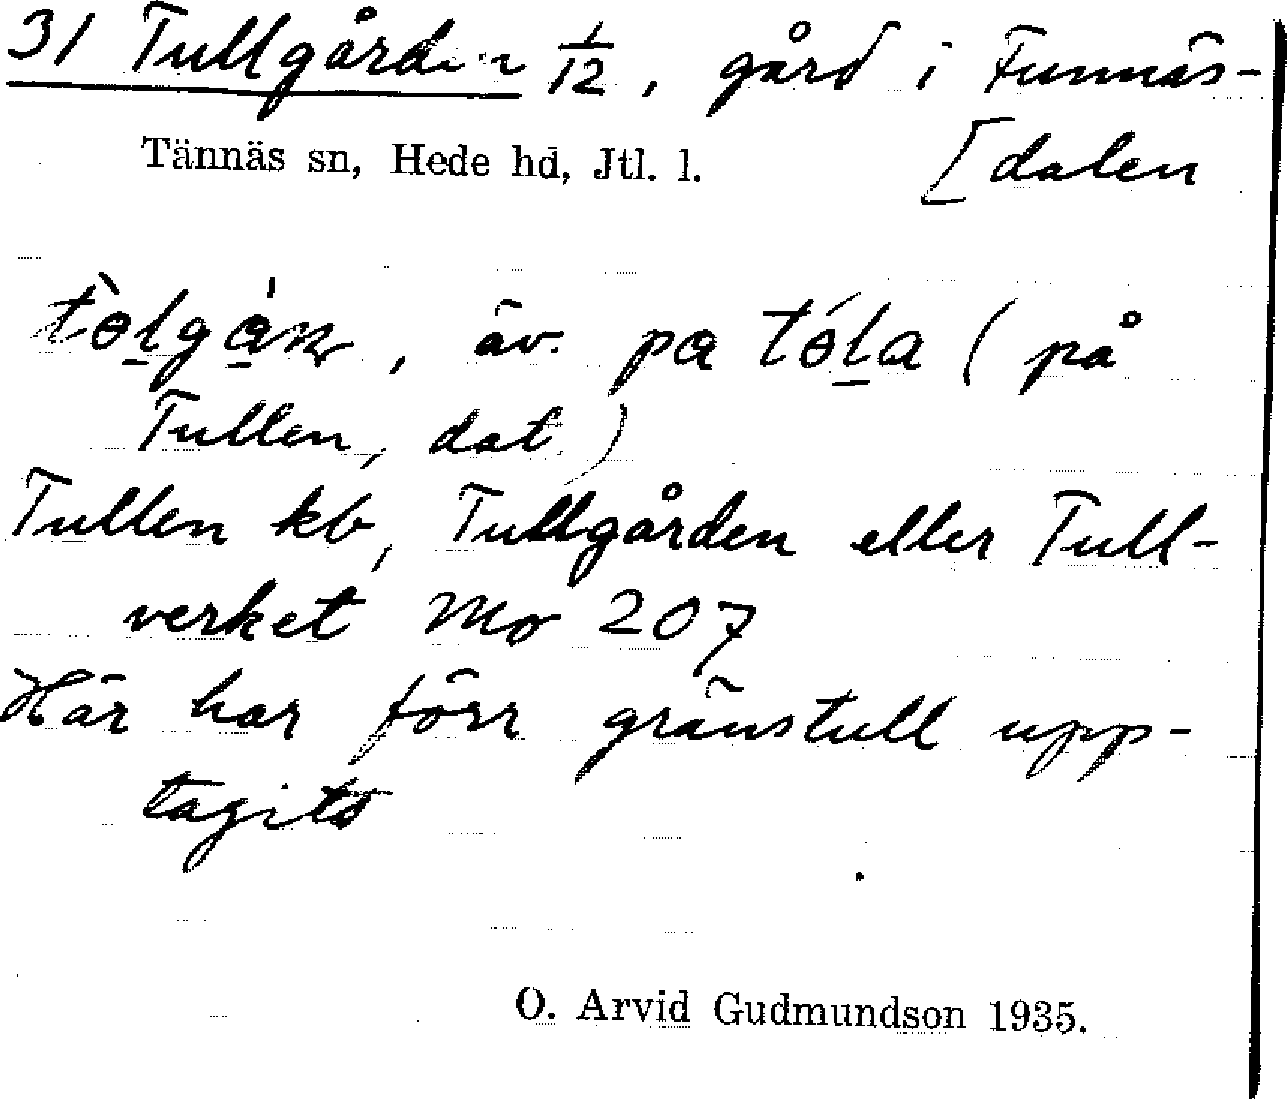 31 Tullgården 1/12, gård i Funnäs-
[dalen
Tännäs sn, Hede hd, Jtl. l.
äv. pa tóla (på
Tullen, dat.)
Tullen kb, Tullgården eller Tull-
verket Mo 207
Här har förr gränstull upp-
tagits
O. Arvid Gudmundson 1935.